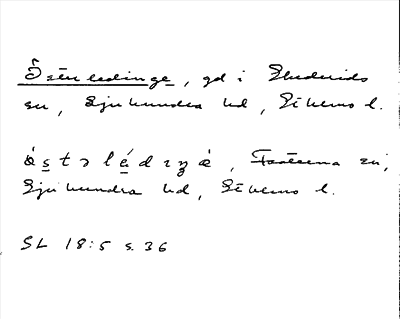 Österledinge, gd i Skederids
sn, Sjuhundra hd, Sthlms l.
ǿstəlédɩŋé, Fasterna sn,
Sjuhundra hd, Sthlms l.
SL 18:5 s. 36